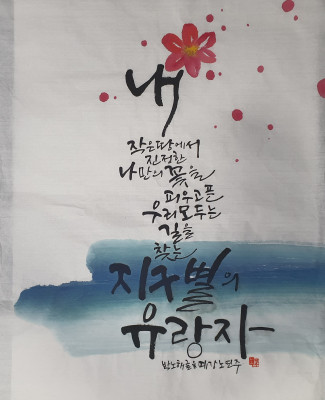 내
작은땅에서
진정한
나만의 꽃을
피우고픈
우리모두는
길을
찾는
지구별의
유랑자
박노해